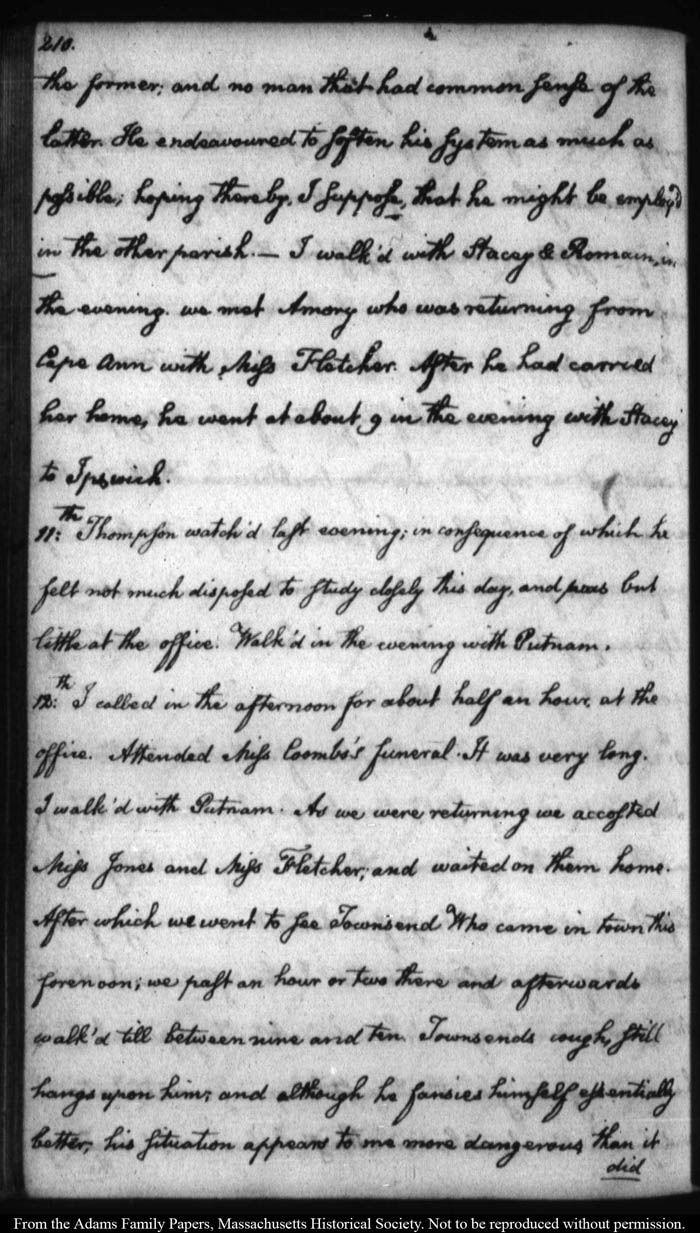 210.
the former; and no man that had common sense of the
latter. He endeavoured to soften his system as much as
possible; hoping thereby, I suppose, that he might be employ'd
in the other parish.— I walk'd with Stacey & Romain, in
the evening. we met Amory who was returning from
Cape Ann with Miss Fletcher. After he had carried
her home, he went at about 9 in the evening with Stacey
to Ipswich.
11:th Thompson watch'd last evening; in consequence of which he
felt not much disposed to study closely this day, and was but
little at the office. Walk'd in the evening with Putnam.
12:th I called in the afternoon for about half an hour, at the
office. Attended Miss Coombs's funeral. It was very long.
I walk'd with Putnam. As we were returning we accosted
Miss Jones and Miss Fletcher; and waited on them home.
After which we went to see Townsend Who came in town this
forenoon; we past an hour or two there and afterwards
walk'd till between nine and ten. Townsends cough, still
hangs upon him; and although he fansies himself essentially
better, his situation appears to me more dangerous than it
did
From the Adams Family Papers, Massachusetts Historical Society. Not to be reproduced without permission.